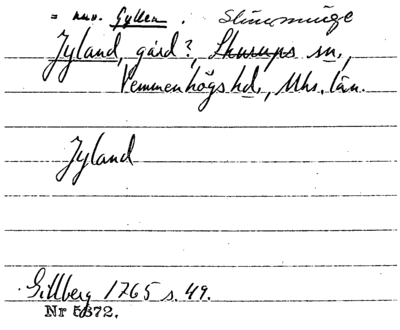 = nuv. Gyllen. Slimminge
Jyland, gård?, Skurups sn,
Vemmenhögs hd, Mhs. län.
Jyland
Gillberg 1765 s. 49.
Nr 5372.